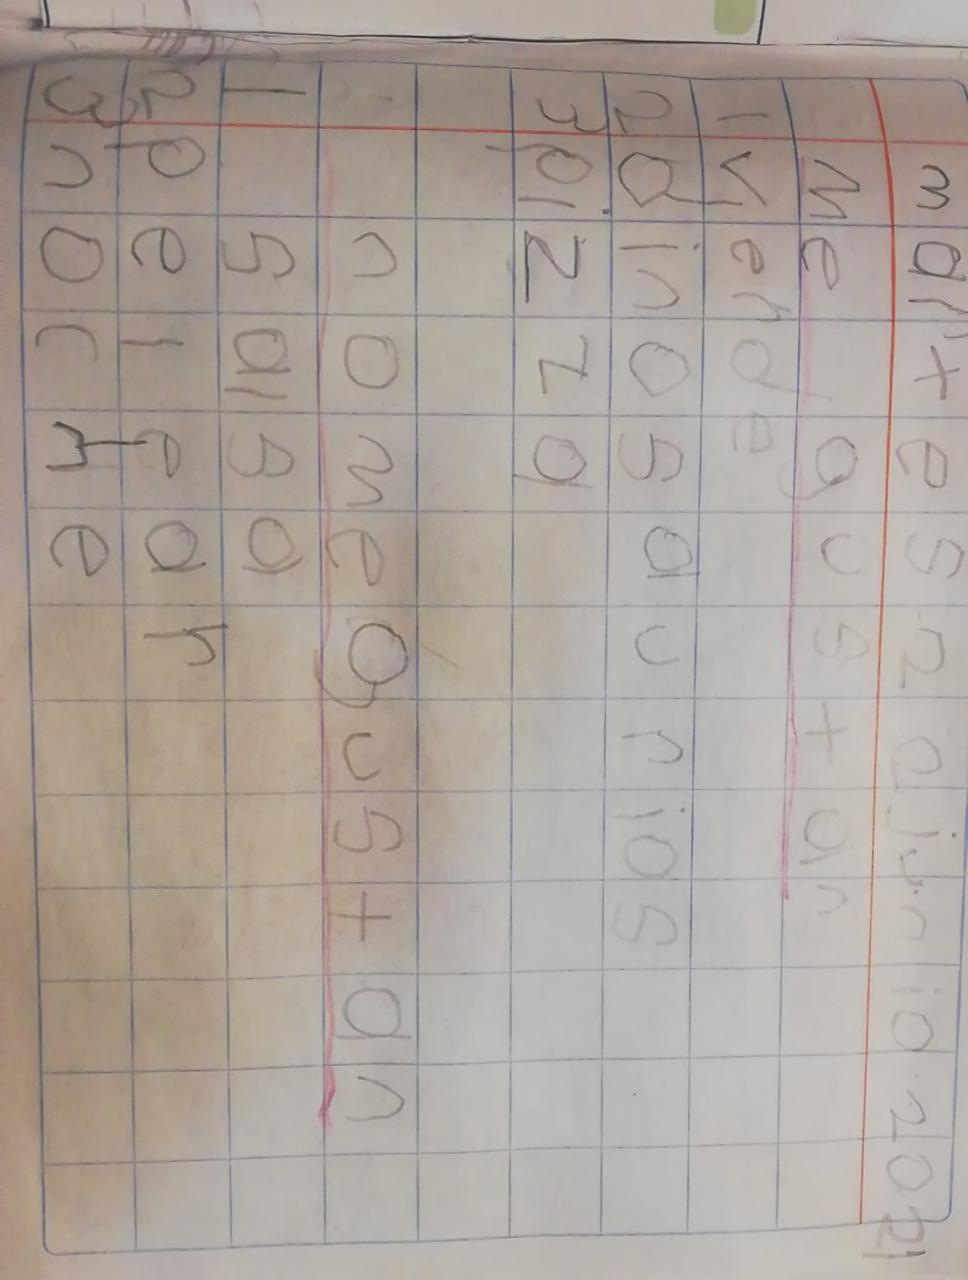 martes 2 d junio 2021
Me gustan
1 verde
2 dinosaurios
3 pizza
no me gustan
1 salsa
2 pelear
3 noche